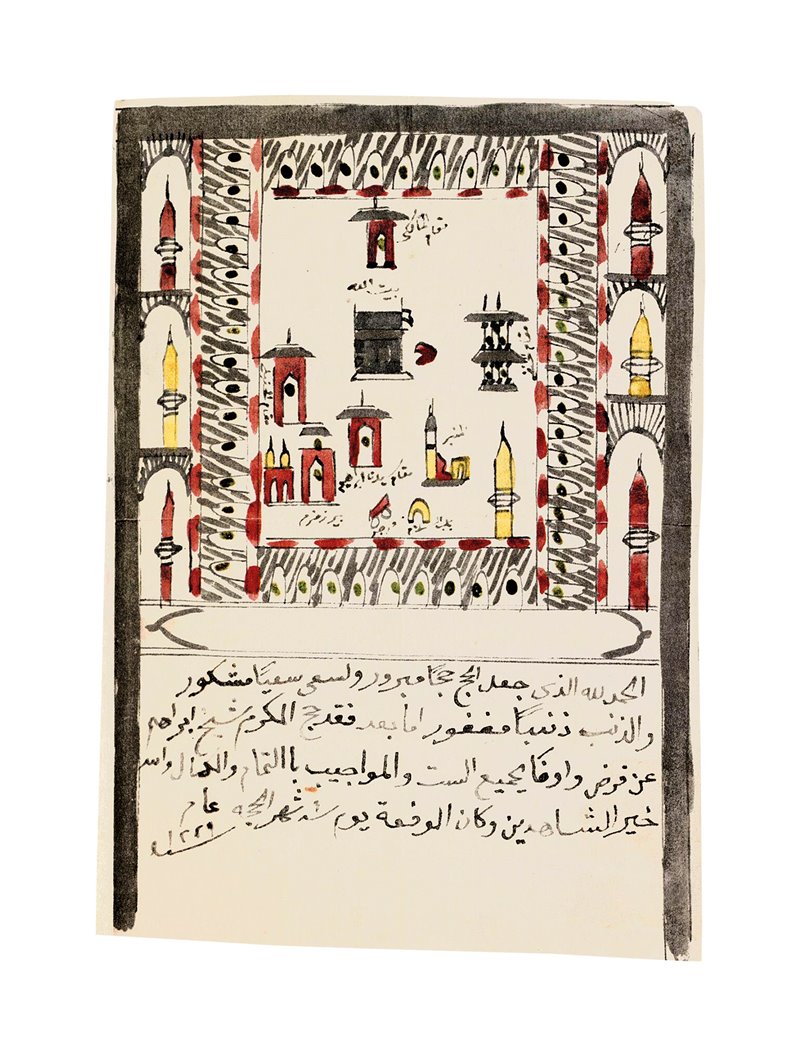 مقام المالكي
بيت الله
المنبر
مقام سيدنا ابراهيم
بير زمزم
الحمد لله الذي جعل الحج حجاً مبرور ولسعى سعياً مشكور
والذنب ذنباً مغفور اما بعد فقد حج المكرم شيخ ابراهم
عن فرض واوفا بجميع الست والمواجيب باالتمام والكمال والله
خير الشاهدين وكان الوقفة يوم شهر الحجه عام
سنة